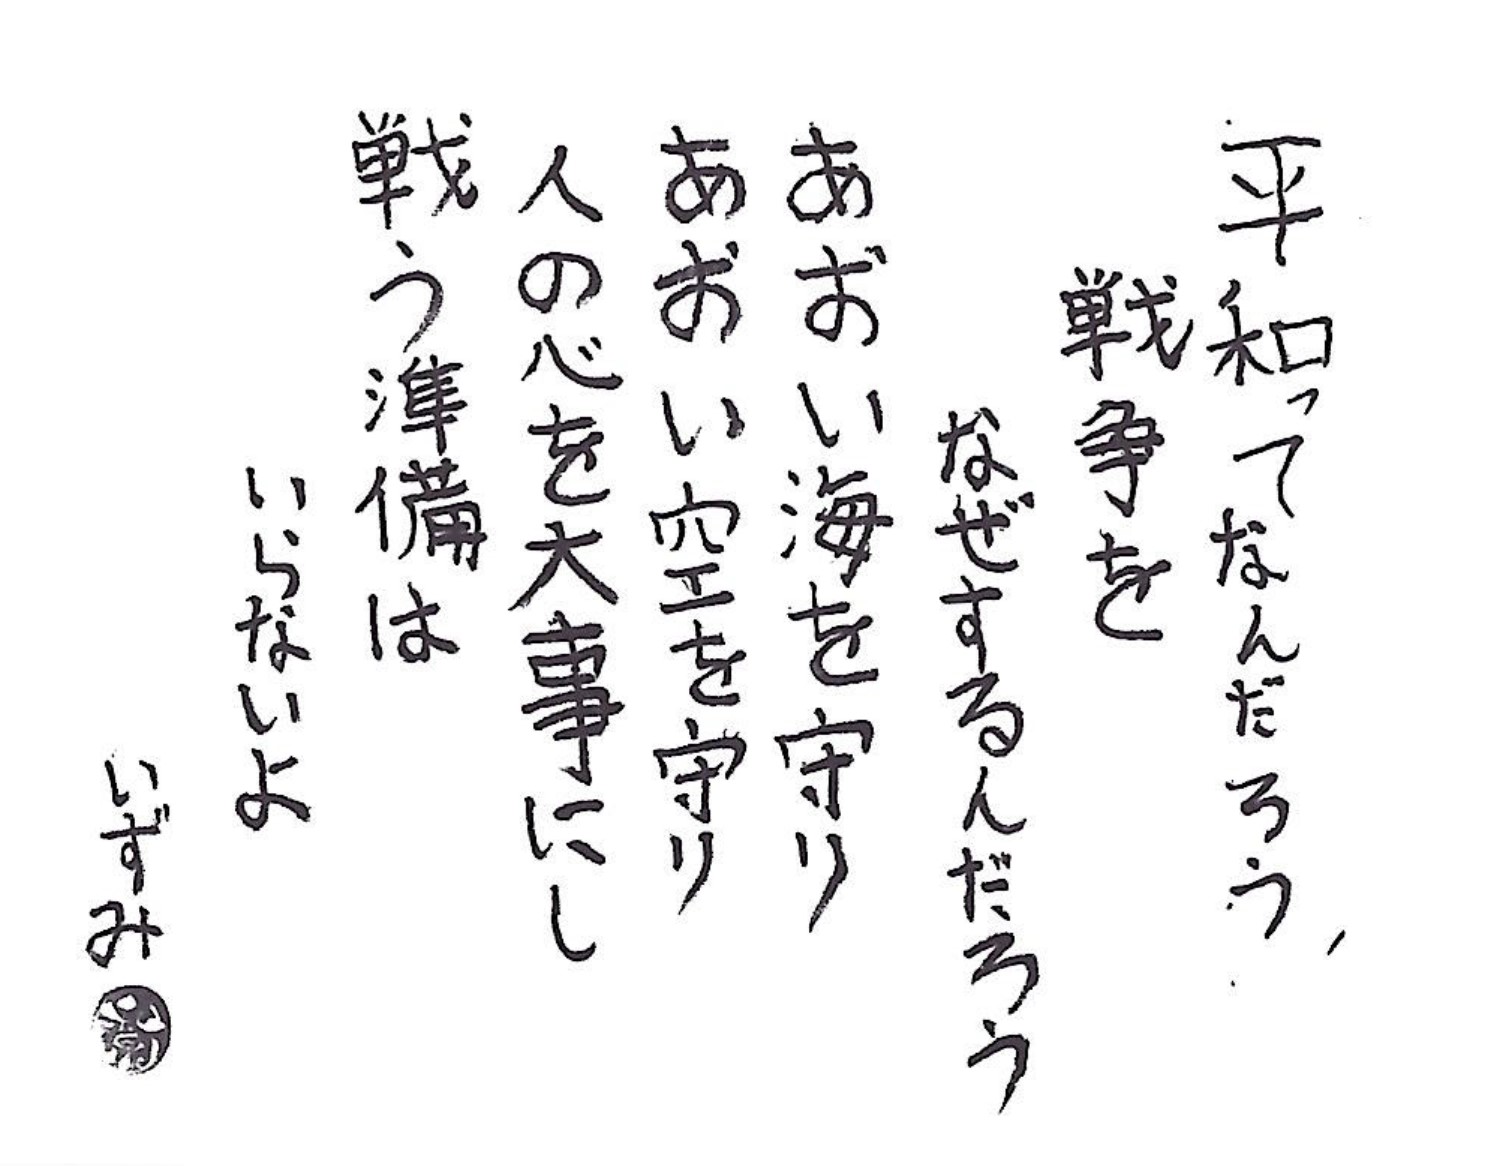 平和ってなんだろう、
戦争を
なぜするんだろう
あおい海を守り
あおい空を守り
人の心を大事にし
戦う準備は
いらないよ
いずみ